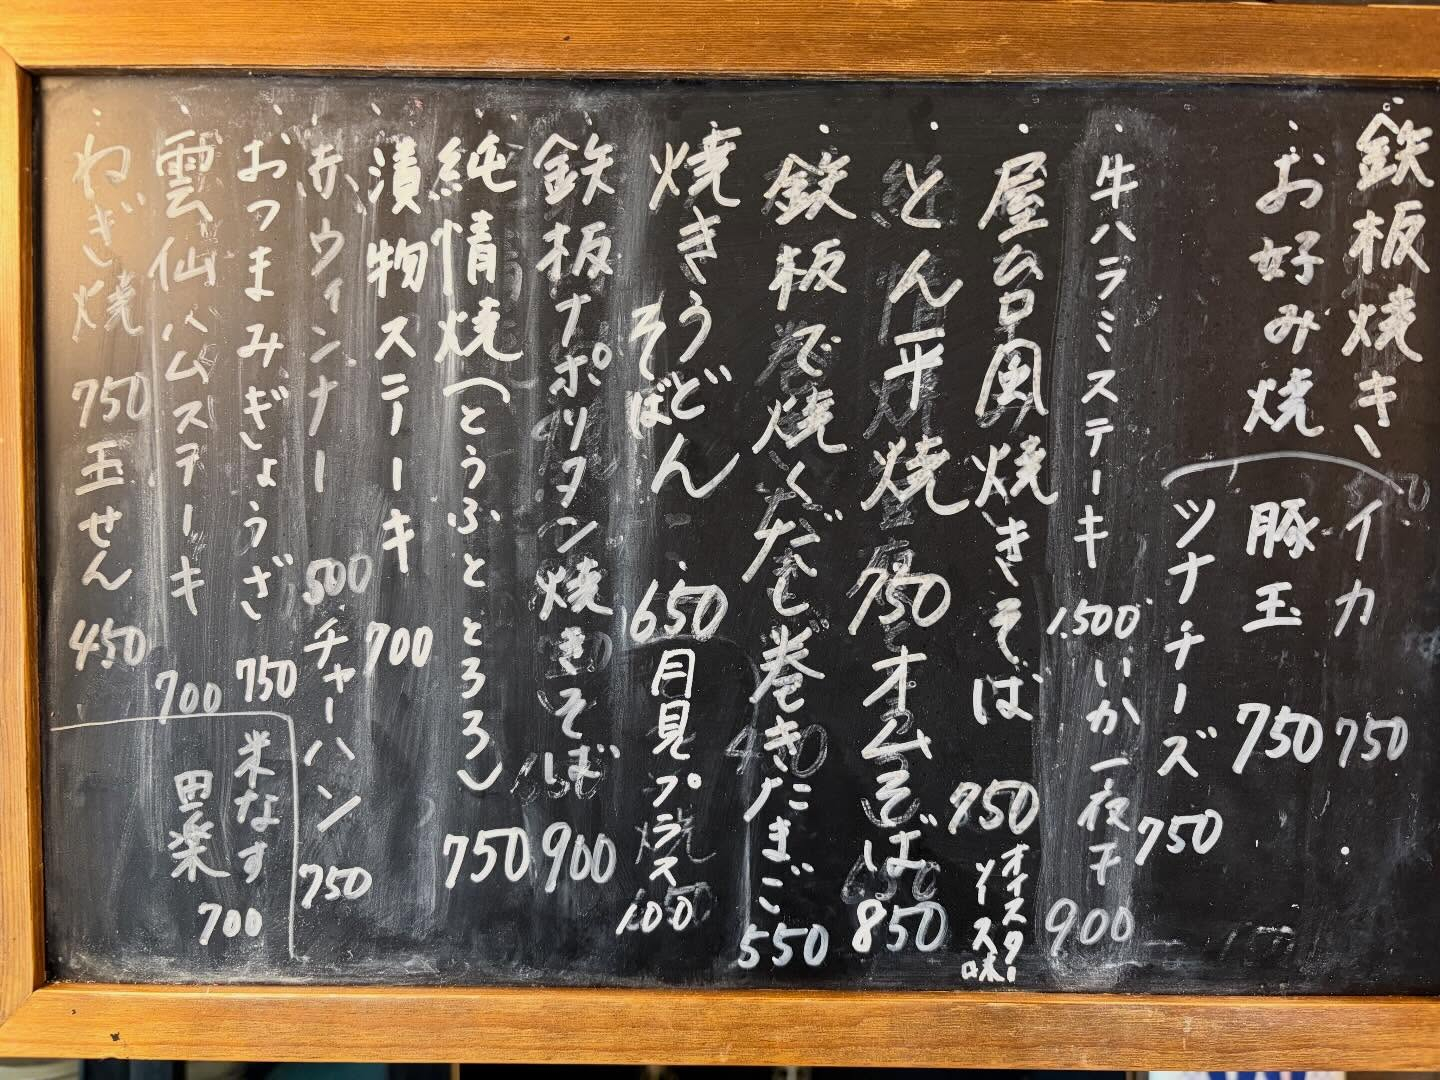 鉄板焼き
お好み焼
イカ 750
豚玉 750
ツナチーズ 750
牛ハラミステーキ 1.500
いか一夜干 900
屋台風焼きそば 750
オイスターソース味
とん平焼 750
オムそば 850
鉄板で焼くだし巻きたまご 550
焼きうどん
そば
650
月見プラス
100
鉄板ナポリタン焼きそば 900
純情焼(とうふととろろ) 750
漬物ステーキ 700
赤ウィンナー 500
チャーハン 750
おつまみぎょうざ 750
雲仙ハムステーキ 700
ねぎ焼 750
玉せん 450
米なす
田楽
700